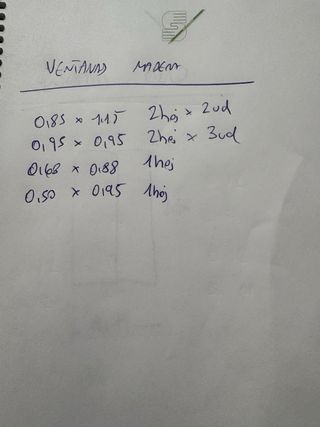 VENTANAS MADERA
0,85 x 1,15 2hoj x 2ud
0,95 x 0,95 2hoj x 3ud
0,68 x 0,88 1hoj
0,50 x 0,95 1hoj